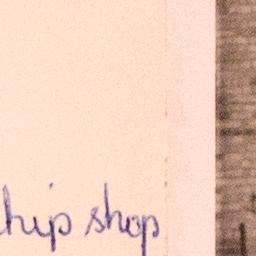 chip shop